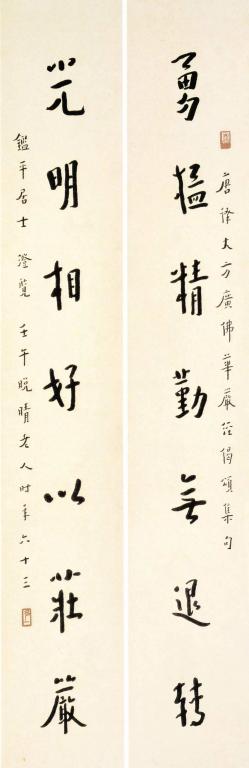 唐译大方廣佛華嚴經偈頌集句
勇猛精勤無退轉
光明相好以莊嚴
鑑平居士 澄覽 壬午晚晴老人时年六十三